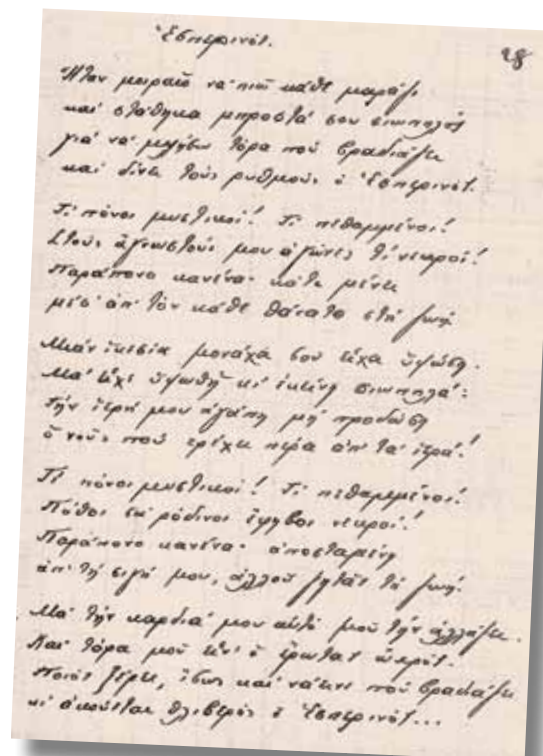 Ἑσπερινός.
28
Ἦταν μοιραῖο νὰ πιῶ κάθε μαράζι
καὶ στάθηκα μπροστά σου σιωπηλὸς
γιὰ νὰ τώρα ποὺ βραδιάζει
καὶ δίνει τοὺς ρυθμοὺς ὁ Ἑσπερινός.
Τί πόνοι μυστικοί! Τί πεθαμμένοι!
Στοὺς ἄγνωστούς μου ἀγῶνες τί νεκροί!
Παράπονο κανένα· κάτι μένει
μέσ' ἀπ' τὸν κάθε θάνατο στὴ ζωή.
Μιὰν ἱκεσία μονάχα σοῦ εἶχα ὑψώσῃ.
Μὰ εἶχε ὑψωθῆ κι' ἐκείνη σιωπηλά:
τὴν ἱερή μου ἀγάπη μὴ προδώσῃ
ὁ νοῦς ποὺ τρέχει πέρα ἀπ' τὰ ἱερά!
Τί πόνοι μυστικοί! Τί πεθαμμένοι!
Πόθοι σὰ ρόδινοι ἔφηβοι νεκροί!
Παράπονο κανένα· ἀποσταμένη
ἀπ' τὴ σιγή μου, ἀλλοῦ ζητᾶς τὴ ζωή!
Μὰ τὴν καρδιά μου αὐτὸ μοῦ τὴν ἀλλάζει.
Καὶ τώρα μοῦ εἶν' ὁ ἔρωτας ὠχρός.
Ποιὸς ξέρει, ἴσως καὶ νἆναι ποὺ βραδιάζει
κι ἀκούεται θλιβερὸς ὁ Ἑσπερινός...